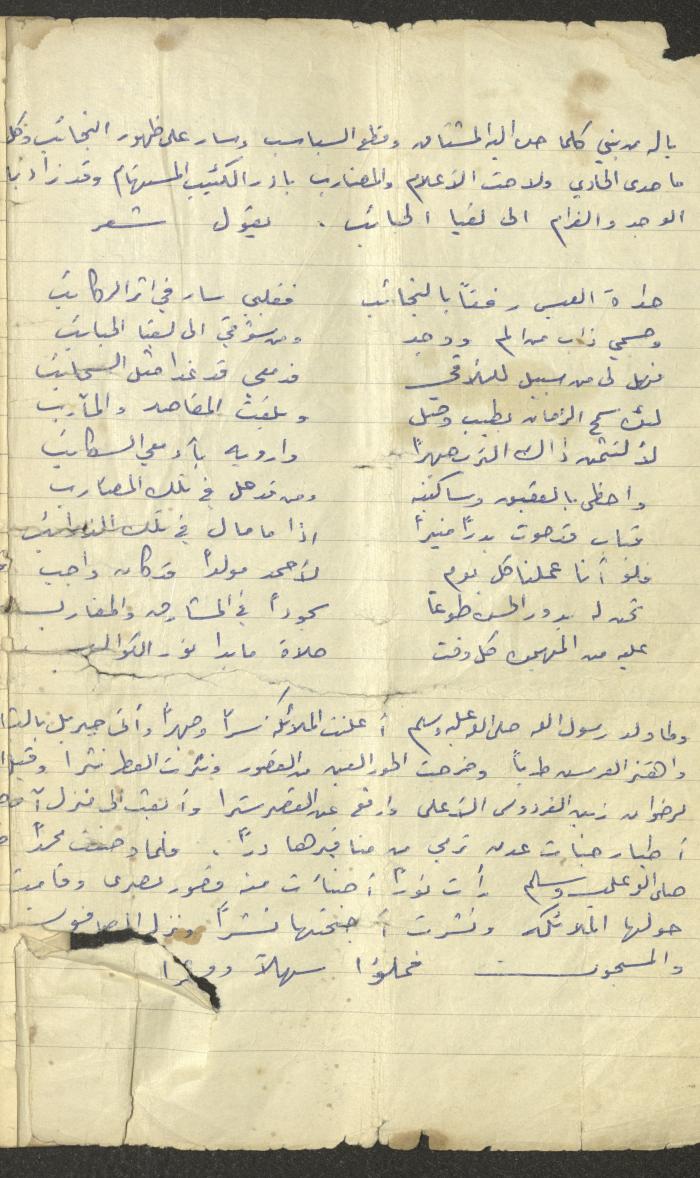 ياله من نبي كلما حن اليه المشتاق وقطع السباسب وسار على ظهور النجائب وكل
ما حدى الحادي ولاحت الأعلام والمضارب بادر الكئيب المستهام وقد زاد به
الوجد والغرام الى لقيا الحبائب . يقول شعر
حداة العيس رفقاً بالنجائب فقلبي سار في اثر الركائب
وجسمي ذاب من الم ووجد ومن شوقي الى لقيا الحبايب
فهل لي من سبيل للتلاقي فدمعي قد غدا مثل السحائب
لئن سمح الزمان بطيب وصل وبلغت المقاصد والمآرب
لألثمن ذاك الترب جهراً وارويه بأدمعي السكايب
واحظى بالعقيق وساكنيه ومن قد حل في تلك المضارب
قباب قد حوت بدراً منيراً اذا ما مال في تلك
فلو أنا عملنا كل يوم لأحمد مولداً قد كان واجب
تخر له بدور الحسن طوعاً سجوداً في المشارق والمغارب
عليه من المهيمن كل وقت صلاة ما بدا نور الكواكب
ولما ولد رسول الله صلى الله عليه وسلم أعلنت الملائكة سراً وجهراً وأتى جبريل
واهتز العرش طرباً وخرجت الحور العين من القصور ونثرت العطر نثرا وقيل
لرضوان زين الفردوس الأعلى وارفع عن القصر سترا وأبعث الى منزل آمنة
أطيار جنات عدن ترمي من مناقيرها دراً . فلما وضعت محمداً
صلى الله عليه وسلم رأت نوراً أضائت منه قصور بصرى وقامت
حولها الملائكة ونشرت أجنحتها نشراً ونزل الصافون
والمسبحون فملؤا سهلا ووعرا